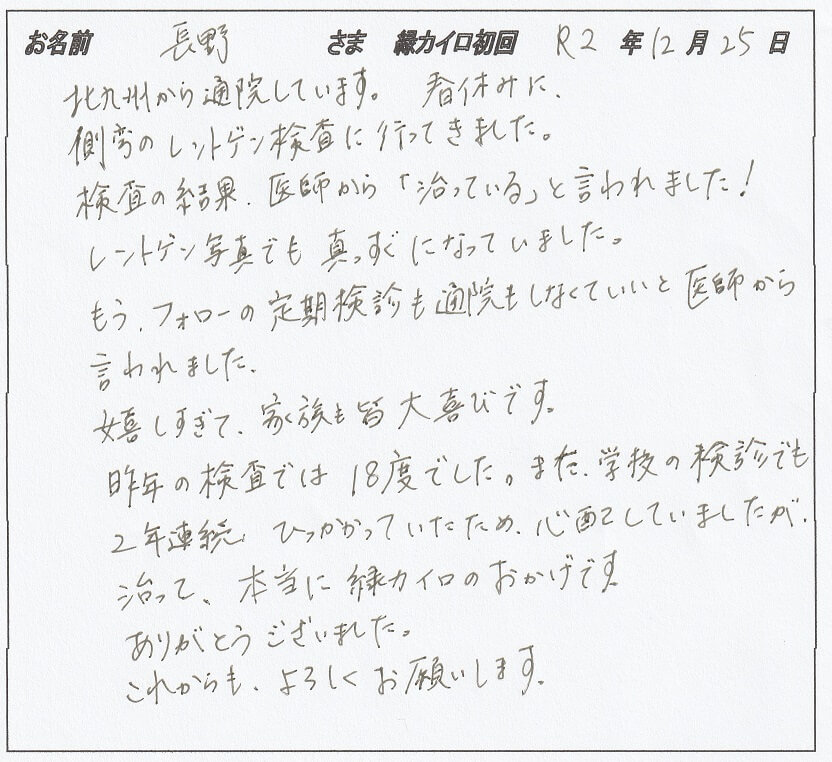 お名前 長野 さま 縁カイロ初回 R2 年 12 月 25 日
北九州から通院しています。 春休みに、
側弯のレントゲン検査に行ってきました。
検査の結果、医師から「治っている」と言われました!
レントゲン写真でも真っすぐになっていました。
もう、フォローの定期検診も通院もしなくていいと医師から
言われました。
嬉しすぎて、家族も皆大喜びです。
昨年の検査では18度でした。また、学校の検診でも
2年連続、ひっかかっていたため、心配していましたが、
治って、本当に縁カイロのおかげです
ありがとうございました。
これからも、よろしくお願いします。